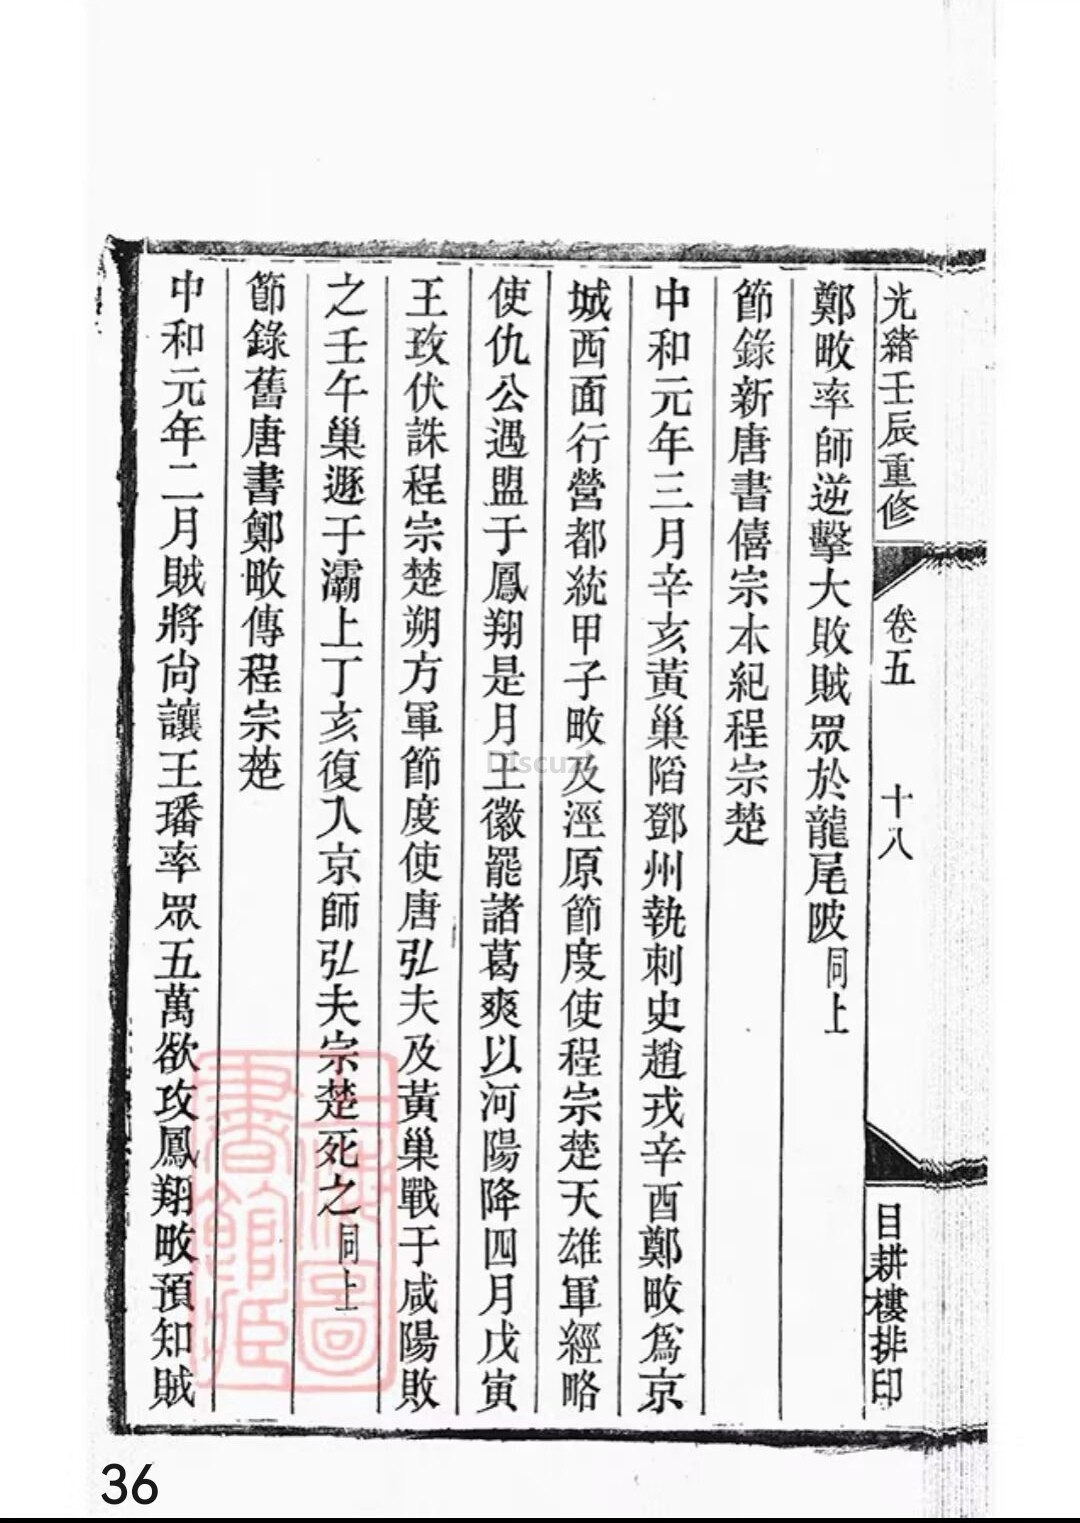 光緒壬辰重修 卷五 十八 目耕樓排印
鄭畋率師逆擊大敗賊眾於龍尾陂同上
節錄新唐書僖宗本紀程宗楚
中和元年三月辛亥黃巢陷鄧州執刺史趙戎辛酉鄭畋爲京
城西面行營都統甲子畋及涇原節度使程宗楚天雄軍經略
使仇公遇盟于鳳翔是月王徽罷諸葛爽以河陽降四月戊寅
王玫伏誅程宗楚朔方軍節度使唐弘夫及黃巢戰于咸陽敗
之壬午巢遯于灞上丁亥復入京師弘夫宗楚死之同上
節錄舊唐書鄭畋傳程宗楚
中和元年二月賊將尙讓王璠率眾五萬欲攻鳳翔畋預知賊
上海圖書館藏
Discuz!
36